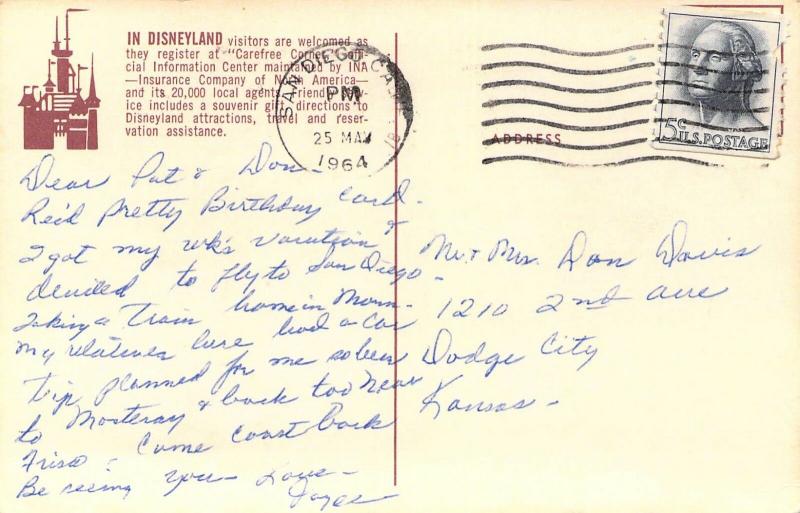 IN DISNEYLAND visitors are welcomed as
they register at "Carefree Corner" offi-
cial Information Center maintained by INA
—Insurance Company of North America—
and its 20,000 local agents. Friendly serv-
ice includes a souvenir guide, directions to
Disneyland attractions, travel and reser-
vation assistance.
SAN DIEGO CALIF
PM
25 MAY
1964
5¢
U.S. POSTAGE
ADDRESS
Dear Pat & Don—
Rec'd pretty Birthday Card.
I got my wk's vacation &
decided to fly to San Diego—
Taking a train home in Morn—
My relatives here had a car
trip planned for me so been
to Monteray & back too near
Frisco— Came Coast back
Be seeing you— Love—
Mr. & Mrs. Don Davis
1210 2nd ave
Dodge City
Kansas—